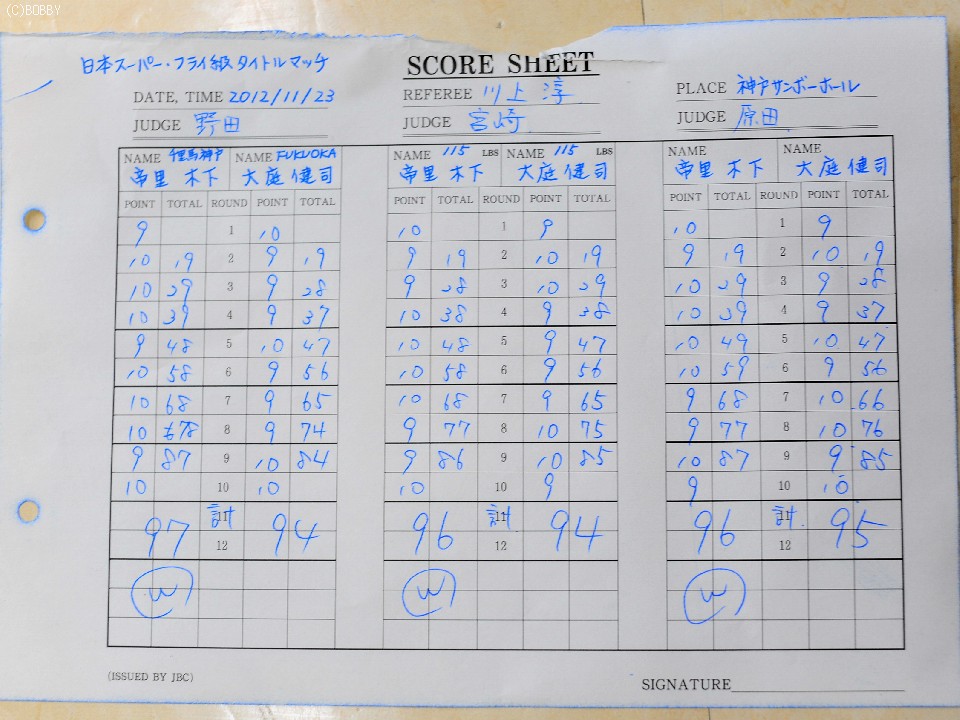 (C)BOBBY
日本スーパー・フライ級タイトルマッチ
SCORE SHEET
DATE, TIME 2012/11/23 REFEREE 川上 淳 PLACE 神戸サンボーホール
JUDGE 野田 JUDGE 宮崎 JUDGE 原田
NAME 但馬神戸 NAME FUKUOKA NAME 115 LBS NAME 115 LBS NAME NAME
帝里 木下 大庭 健司 帝里 木下 大庭 健司 帝里 木下 大庭 健司
POINT TOTAL ROUND POINT TOTAL POINT TOTAL ROUND POINT TOTAL POINT TOTAL ROUND POINT TOTAL
9 1 10 10 1 9 10 1 9
10 19 2 9 19 9 19 2 10 19 9 19 2 10 19
10 29 3 9 28 9 28 3 10 29 10 29 3 9 28
10 39 4 9 37 10 38 4 9 38 10 39 4 9 37
9 48 5 10 47 10 48 5 9 47 10 49 5 10 47
10 58 6 9 56 10 58 6 9 56 10 59 6 9 56
10 68 7 9 65 10 68 7 9 65 9 68 7 10 66
10 78 8 9 74 9 77 8 10 75 9 77 8 10 76
9 87 9 10 84 9 86 9 10 85 10 87 9 9 85
10 10 10 10 10 9 9 10 10
97 計 94 96 計 94 96 計 95
12 12 12
W W W
(ISSUED BY JBC)
SIGNATURE